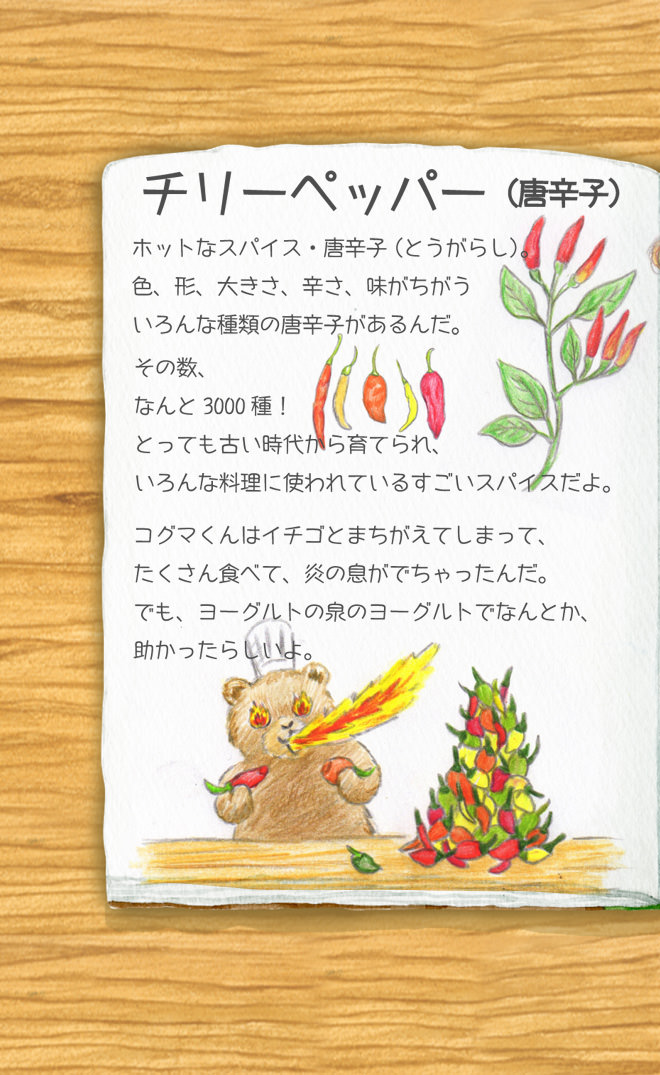 チリーペッパー（唐辛子）
ホットなスパイス・唐辛子（とうがらし）。
色、形、大きさ、辛さ、味がちがう
いろんな種類の唐辛子があるんだ。
その数、
なんと 3000 種！
とっても古い時代から育てられ、
いろんな料理に使われているすごいスパイスだよ。
コグマくんはイチゴとまちがえてしまって、
たくさん食べて、炎の息がでちゃったんだ。
でも、ヨーグルトの泉のヨーグルトでなんとか、
助かったらしいよ。